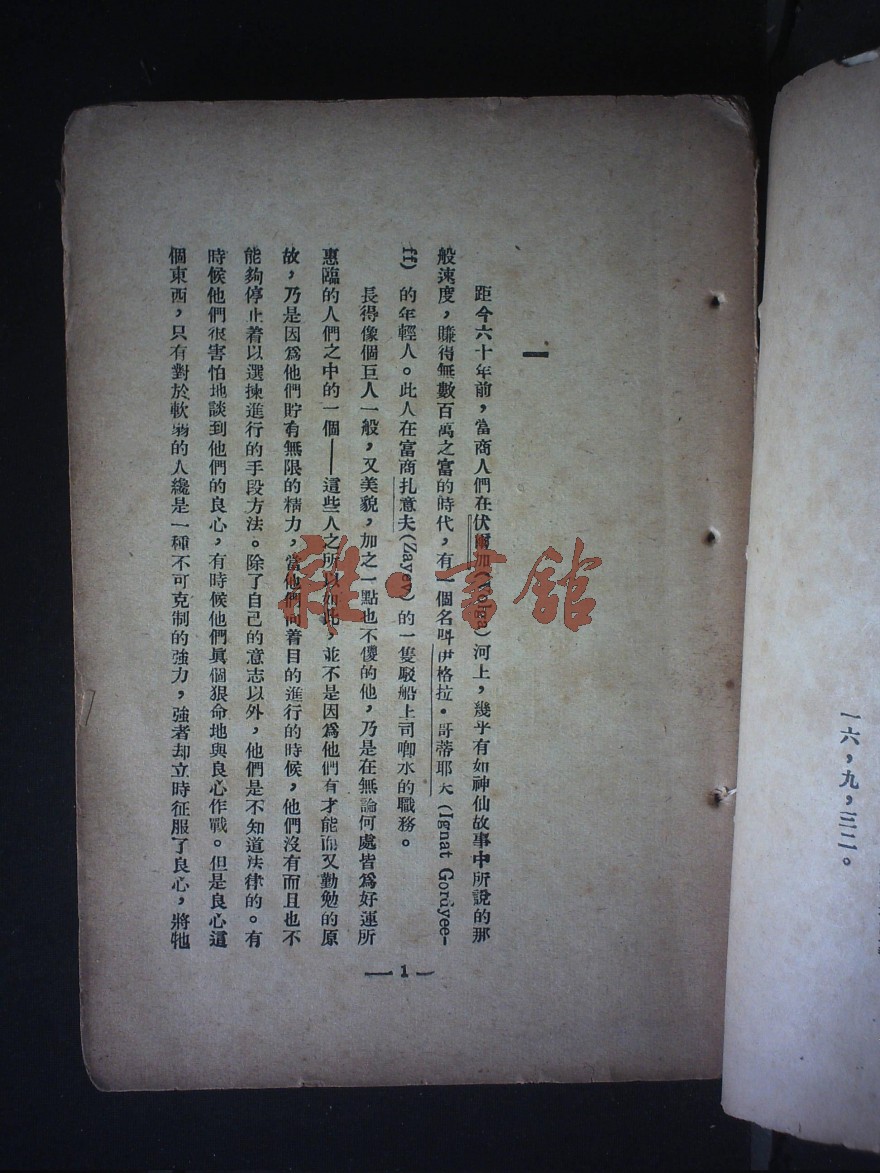 一六，九，三二。
一
距今六十年前，當商人們在伏爾加(Volga)河上，幾乎有如神仙故事中所說的那
般速度，賺得無數百萬之富的時代，有一個名叫伊格拉·哥蒂耶夫(Ignat Gordyee-
ff)的年輕人。此人在富商扎意夫(Zayev)的一隻駁船上司唧水的職務。
長得像個巨人一般，又美貌，加之一點也不傻的他，乃是在無論何處皆爲好運所
惠臨的人們之中的一個——這些人之所以如此，並不是因爲他們有才能而又勤勉的原
故，乃是因爲他們貯有無限的精力，當他們向着目的進行的時候，他們沒有而且也不
能夠停止着以選揀進行的手段方法。除了自己的意志以外，他們是不知道法律的。有
時候他們很害怕地談到他們的良心，有時候他們眞個狠命地與良心作戰。但是良心這
個東西，只有對於軟弱的人纔是一種不可克制的強力，強者却立時征服了良心，將牠
— 1 —
雜·書館